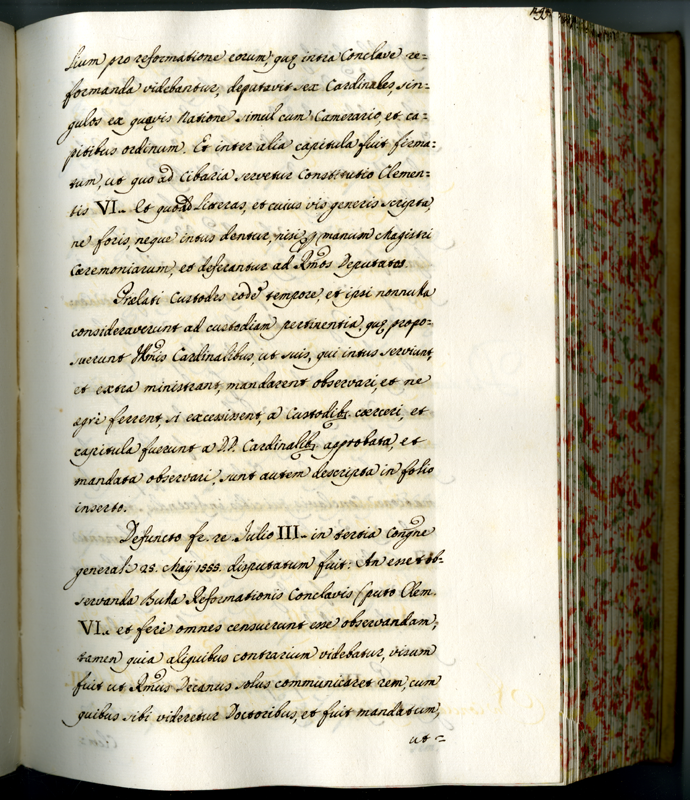 lium pro reformatione eorum, quę intra Conclave re=
formanda videbantur, deputavit sex Cardinales, sin=
gulos ex quavis Natione simul cum Camerario, et ca=
pitibus ordinum. Et inter alia capitula fuit firma=
tum, ut quo ad Cibaria servetur Constitutio Clemen=
tis VI. Et quoad Literas, et cuius vis generis scripta,
ne foris, neque intus dentur, nisi p manum Magistri
Cæremoniarum, et deferantur ad Rm̃os Deputatos.
Prelati Custodes eodẽ tempore, et ipsi nonnulla
consideraverunt ad custodiam pertinentia, quę propo=
suerunt Illm̃is Cardinalibus, ut suis, qui intus serviunt,
et extra ministrant, mandarent observari, et ne
agri ferrent, si excessissent, a Custodib; coerceri, et
capitula fuerunt a DD. Cardinalib; approbata, et
mandata observari, sunt autem descripta in folio
inserto.
Defuncto fe. re. Julio III. in tertia Congñe
generali 28. Maÿ 1555. disputatum fuit: An esset ob=
servanda Bulla Reformationis Conclavis (puto Clem.
VI. et ferè omnes censuerunt esse observandam,
tamen quia aliquibus contrarium videbatur, visum
fuit ut Rm̃us Decanus solus communicaret rem, cum
quibus sibi videretur Doctoribus, et fuit mandatum,
ut=